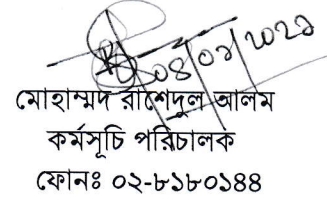 ০৪/০২/২০২১
মোহাম্মদ রাশেদুল আলম
কর্মসূচি পরিচালক
ফোনঃ ০২-৮১৮০১৪৪